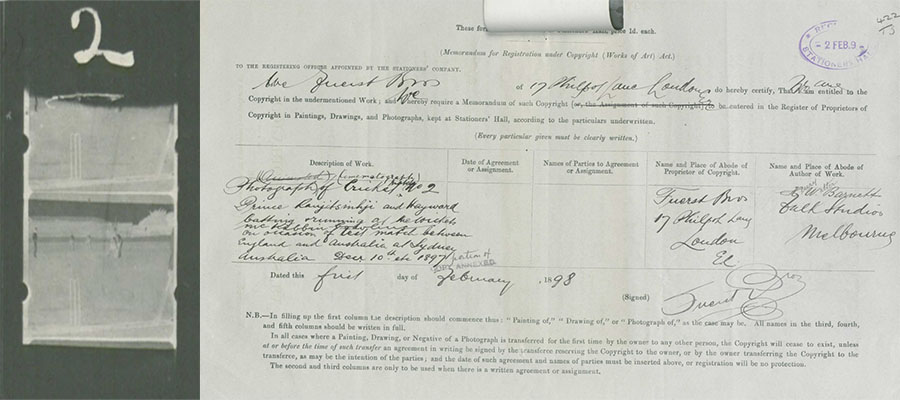 2
These
price 1d. each.
422
2 FEB. 9
STATIONERS' HALL
(Memorandum for Registration under Copyright (Works of Art) Act.)
TO THE REGISTERING OFFICER APPOINTED BY THE STATIONERS' COMPANY.
We Fuerst Bros of 17 Philpot Lane London do hereby certify, That We are entitled to the
Copyright in the undermentioned Work; and We hereby require a Memorandum of such Copyright (or, the Assignment of such Copyright) to be entered in the Register of Proprietors of
Copyright in Paintings, Drawings, and Photographs, kept at Stationers' Hall, according to the particulars underwritten.
(Every particular given must be clearly written.)
Description of Work.
Date of Agreement or Assignment.
Names of Parties to Agreement or Assignment.
Name and Place of Abode of Proprietor of Copyright.
Name and Place of Abode of Author of Work.
(Cinematograph)
Photograph of Cricket No 2
Prince Ranjitsinhji and Hayward
batting & running at the wickets
on occasion of test match between
England and Australia at Sydney
Australia Decr 10th 1897
portion of
COPY ANNEXED
Fuerst Bros
17 Philpot Lane
London
EC
W. Barnett
Talk Studios
Melbourne
Dated this first day of February 1898
(Signed) Fuerst Bros
N.B.—In filling up the first column the description should commence thus: "Painting of," "Drawing of," or "Photograph of," as the case may be. All names in the third, fourth,
and fifth columns should be written in full.
In all cases where a Painting, Drawing, or Negative of a Photograph is transferred for the first time by the owner to any other person, the Copyright will cease to exist, unless
at or before the time of such transfer an agreement in writing be signed by the transferee reserving the Copyright to the owner, or by the owner transferring the Copyright to the
transferee, as may be the intention of the parties; and the date of such agreement and names of parties must be inserted above, or registration will be no protection.
The second and third columns are only to be used when there is written agreement or assignment.